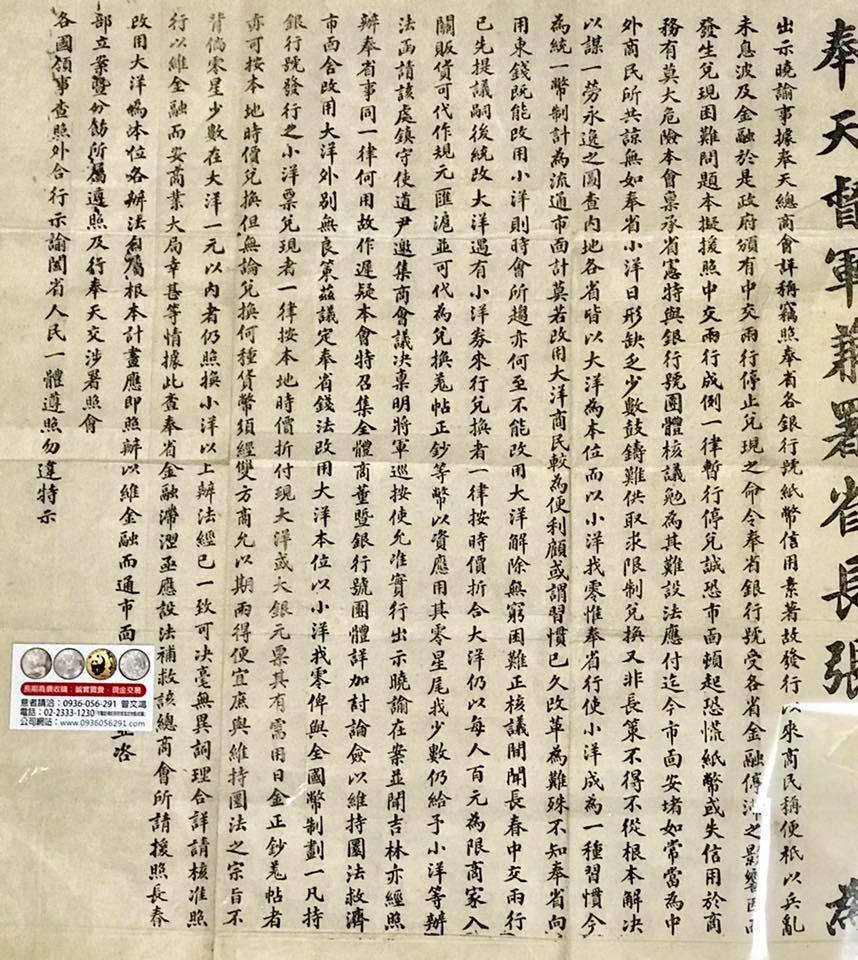 奉天督軍兼署省長張 為
出示曉諭事據奉天總商會詳稱竊照奉省各銀行號紙幣信用素著故發行以來商民稱便秖以兵亂
未息波及金融於是政府頒有中交兩行停止兌現之命令奉省銀行號受各省金融停滯之影響因而
發生兌現困難問題本擬援照中交兩行成例一律暫行停兌誠恐市面頓起恐慌紙幣或失信用於商
務有莫大危險本會稟承省憲特與銀行號團體核議勉為其難設法應付迄今市面安堵如常當為中
外商民所共諒無如奉省小洋日形缺乏少數鼓鑄難供取求限制兌換又非長策不得不從根本解決
以謀一勞永逸之圖查內地各省皆以大洋為本位而以小洋找零惟奉省行使小洋成為一種習慣今
為統一幣制計為流通市面計莫若改用大洋商民較為便利顧或謂習慣已久改革為難殊不知奉省向
用東錢既能改用小洋則時會所趨亦何至不能改用大洋解除無窮困難正核議間聞長春中交兩行
已先提議嗣後統改大洋遇有小洋券來行兌換者一律按時價折合大洋仍以每人百元為限商家入
關販貨可代作規元匯滬並可代為兌換羌帖正鈔等幣以資應用其零星尾找少數仍給予小洋等辦
法函請該處鎮守使道尹邀集商會議決稟明將軍巡按使允准實行出示曉諭在案並聞吉林亦經照
辦奉省事同一律何用故作遲疑本會特召集全體商董暨銀行號團體詳加討論僉以維持圜法救濟
市面舍改用大洋外別無良策茲議定奉省錢法改用大洋本位以小洋找零俾與全國幣制劃一凡持
銀行號發行之小洋票兌現者一律按本地時價折付現大洋或大銀元票其有需用日金正鈔羌帖者
亦可按本地時價兌換但無論兌換何種貨幣須經雙方商允以期兩得便宜庶與維持圜法之宗旨不
背倘零星少數在大洋一元以內者仍照換小洋以上辦法經已一致可決毫無異詞理合詳請核准照
行以維金融而安商業大局幸甚等情據此查奉省金融滯澀亟應設法補救該總商會所請援照長春
改用大洋為本位各辦法自屬根本計畫應即照辦以維金融而通市面
部立案暨分飭所屬遵照及行奉天交涉署照會
各國領事查照外合行示諭闔省人民一體遵照勿違特示
咨
長期高價收購：誠實買賣・現金交易
意者請洽：0936-056-291 曾文鴻
電話：02-2333-1230
公司網站：www.0936056291.com